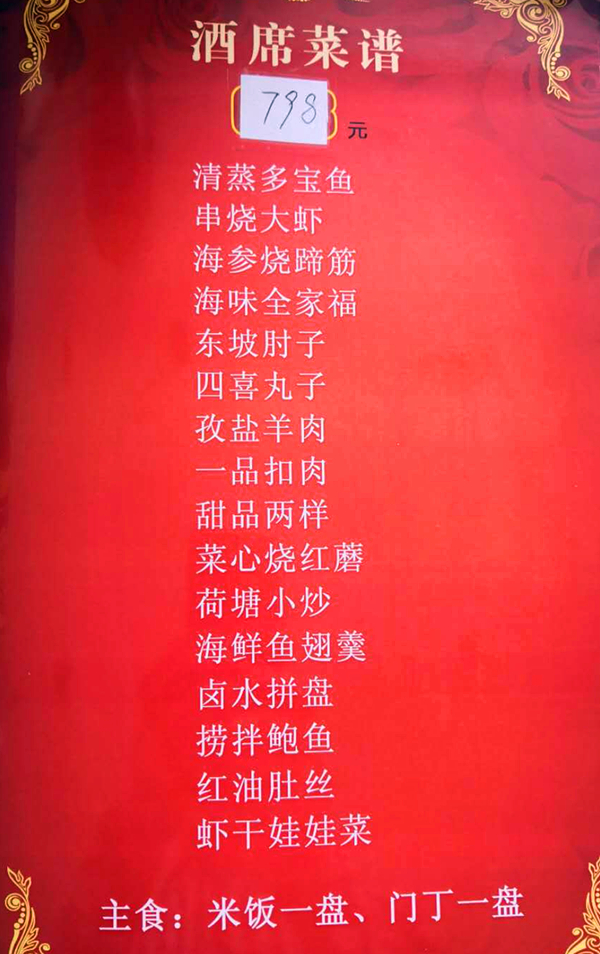 酒席菜谱
798 元
清蒸多宝鱼
串烧大虾
海参烧蹄筋
海味全家福
东坡肘子
四喜丸子
孜盐羊肉
一品扣肉
甜品两样
菜心烧红蘑
荷塘小炒
海鲜鱼翅羹
卤水拼盘
捞拌鲍鱼
红油肚丝
虾干娃娃菜
主食：米饭一盘、门丁一盘